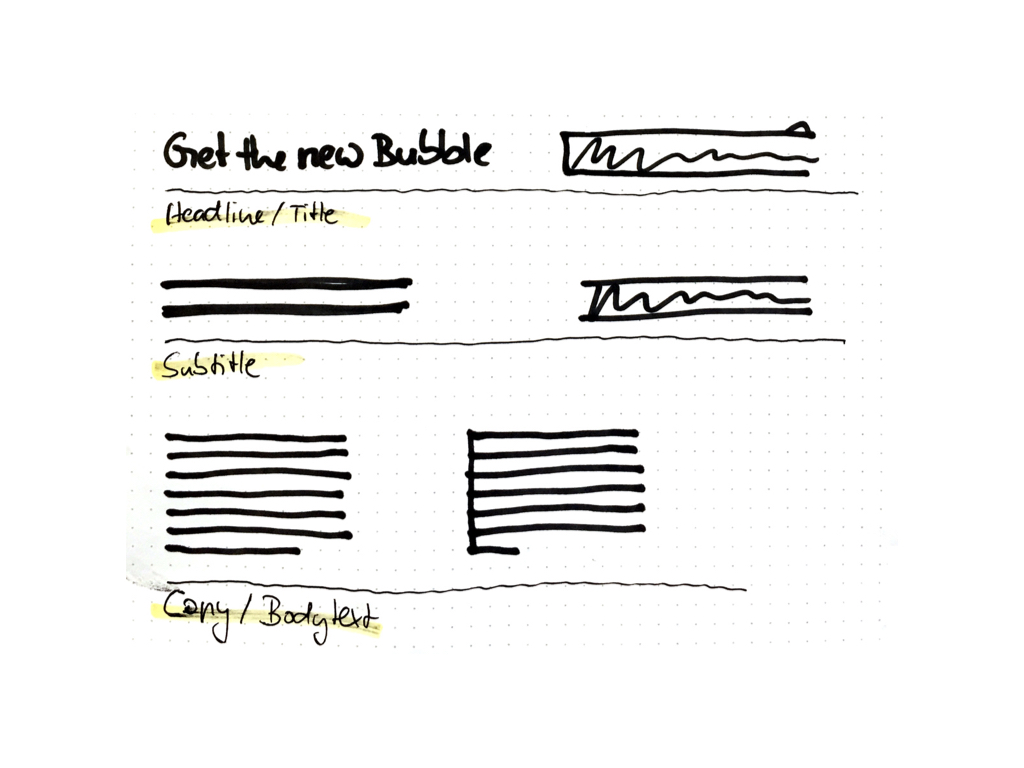 Get the new Bubble
Headline / Title
Subtitle
Copy / Bodytext